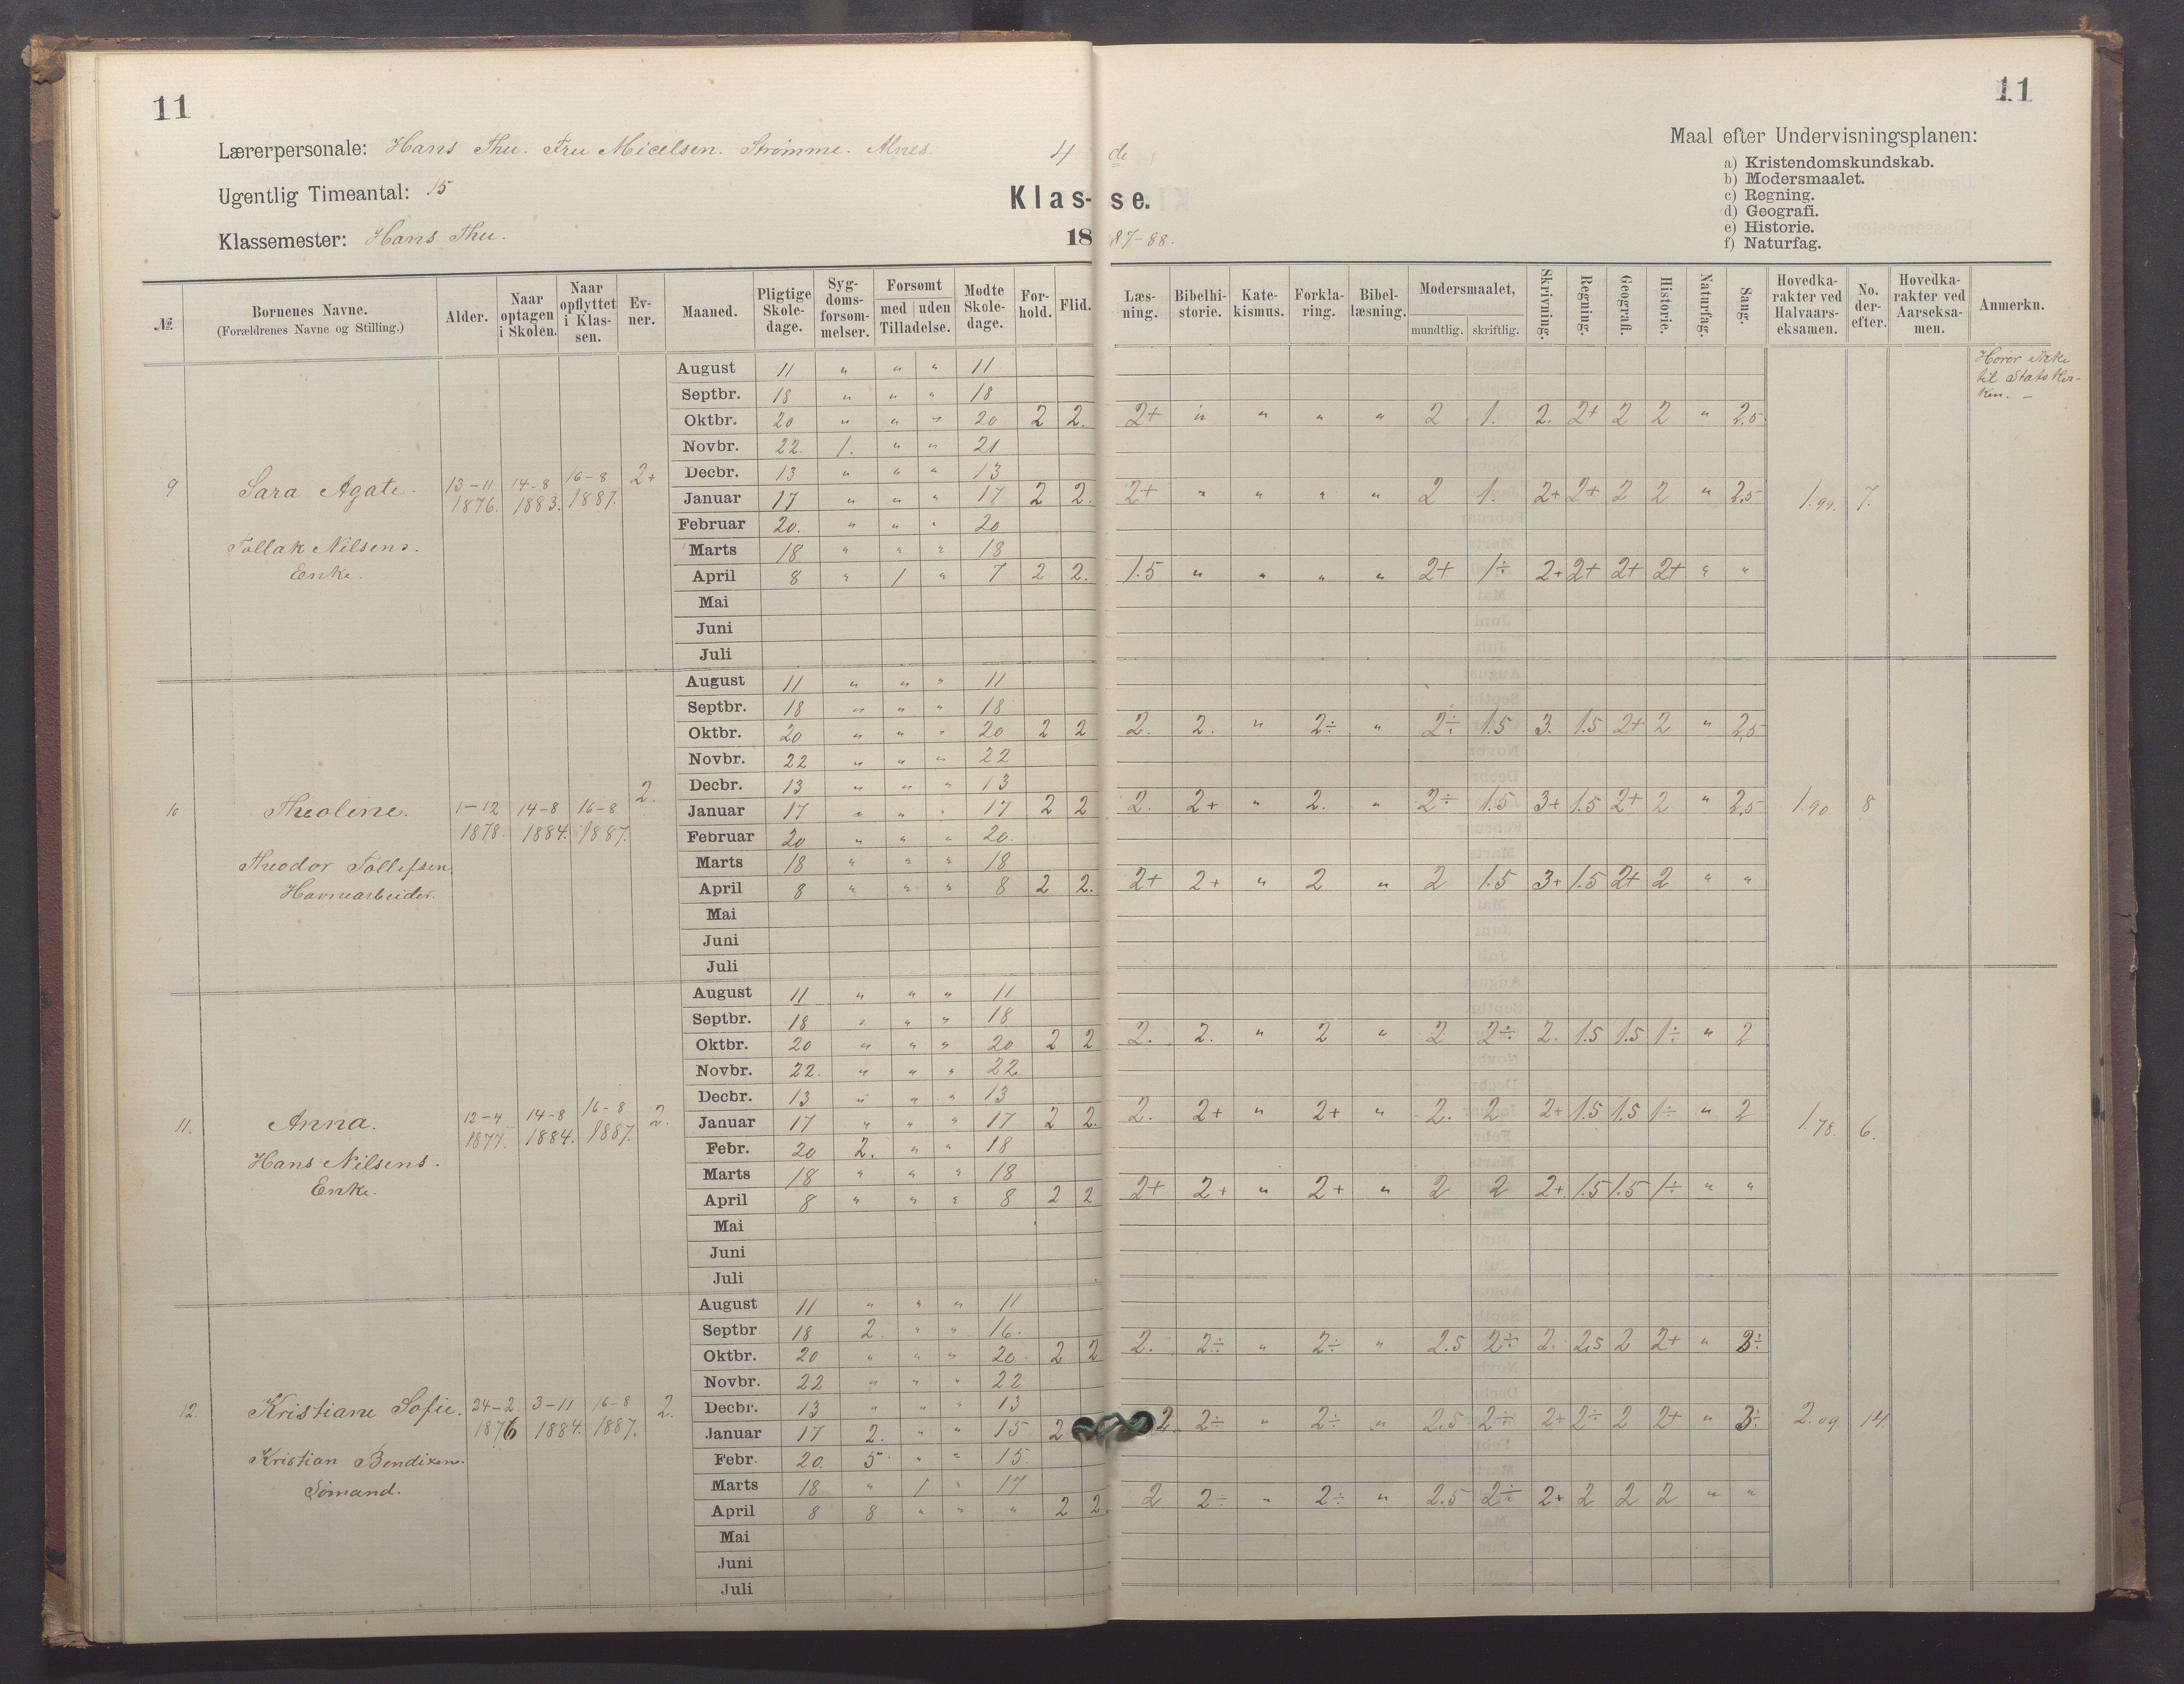 11
11
Lærerpersonale: Hans Thu. Fru Micelsen. Strømme. Alnes.
4 de
Maal efter Undervisningsplanen:
Ugentlig Timeantal: 15
Klas- se.
a) Kristendomskundskab.
b) Modersmaalet.
c) Regning.
d) Geografi.
e) Historie.
f) Naturfag.
Klassemester: Hans Thu.
18 87-88.
№ Børnenes Navne. (Forældrenes Navne og Stilling.) Alder. Naar optagen i Skolen. Naar opflyttet i Klassen. Evner. Maaned. Pligtige Skoledage. Sygdomsforsømmelser. Forsømt med uden Tilladelse. Mødte Skoledage. Forhold. Flid. Læsning. Bibelhistorie. Katekismus. Forklaring. Bibellæsning. Modersmaalet, mundtlig. skriftlig. Skrivning. Regning. Geografi. Historie. Naturfag. Sang. Hovedkarakter ved Halvaarseksamen. No. derefter. Hovedkarakter ved Aarseksamen. Anmerkn.
9 Sara Agate. 13-11 1876. 14-8 1883. 16-8 1887. 2+
Tollak Nilsens. Enke.
Hører ikke til Statskirken. –
August 11 " " " 11
Septbr. 18 " " " 18
Oktbr. 20 " " " 20 2 2. 2+ " " " " 2 1. 2. 2+ 2 2 " 2.5
Novbr. 22. 1. " " 21
Decbr. 13 " " " 13
Januar 17 " " " 17 2 2. 2+ " " " " 2 1. 2+ 2+ 2 2 " 2.5 1.99. 7.
Februar 20. " " " 20
Marts 18 " " " 18
April 8 " 1 " 7 2 2. 1.5 " " " " 2+ 1÷ 2+ 2+ 2+ 2+ " "
Mai
Juni
Juli
10 Theoline. 1-12 1878. 14-8 1884. 16-8 1887. 2.
Theodor Tollefsen. Havnearbeider.
August 11 " " " 11
Septbr. 18 " " " 18
Oktbr. 20 " " " 20 2 2 2. 2. " 2÷ " 2÷ 1.5 3. 1.5 2+ 2 " 2,5
Novbr. 22 " " " 22
Decbr. 13 " " " 13
Januar 17 " " " 17 2 2 2. 2+ " 2. " 2÷ 1.5 3+ 1.5 2+ 2 " 2,5 1.90. 8
Februar 20 " " " 20.
Marts 18 " " " 18
April 8 " " " 8 2 2. 2+ 2+ " 2 " 2 1.5 3+ 1.5 2+ 2 " "
Mai
Juni
Juli
11. Anna. 12-4 1877. 14-8 1884. 16-8 1887. 2.
Hans Nilsens. Enke.
August 11 " " " 11
Septbr. 18 " " " 18
Oktbr. 20 " " " 20 2 2 2. 2. " 2 " 2 2÷ 2. 1.5 1.5 1÷ " 2
Novbr. 22. " " " 22
Decbr. 13 " " " 13
Januar 17 " " " 17 2 2. 2. 2+ " 2+ " 2. 2 2+ 1.5 1.5 1÷ " 2 1.78. 6.
Febr. 20 2. " " 18
Marts 18 " " " 18
April 8 " " " 8 2 2 2+ 2+ " 2+ " 2 2 2+. 1.5 1.5 1÷ " "
Mai
Juni
Juli
12. Kristiane Sofie. 24-2. 1876 3-11 1884. 16-8 1887. 2.
Kristian Bendixen. Sømand.
August 11 " " " 11
Septbr 18 2. " " 16.
Oktbr. 20 " " " 20. 2 2 2. 2÷ " 2÷ " 2.5 2÷ 2. 2,5 2 2+ " 3÷
Novbr. 22 " " " 22
Decbr. 13 " " " 13
Januar 17 2. " " 15 2 2. 2÷ " 2÷ " 2.5 2÷ 2+ 2÷ 2 2+ " 3÷ 2.09. 14.
Febr. 20. 5. " " 15.
Marts 18 " 1 " 17
April 8 8 " " " 2 2. 2 2÷ " 2÷ " 2.5 2÷ 2+ 2 2 2 " "
Mai
Juni
Juli